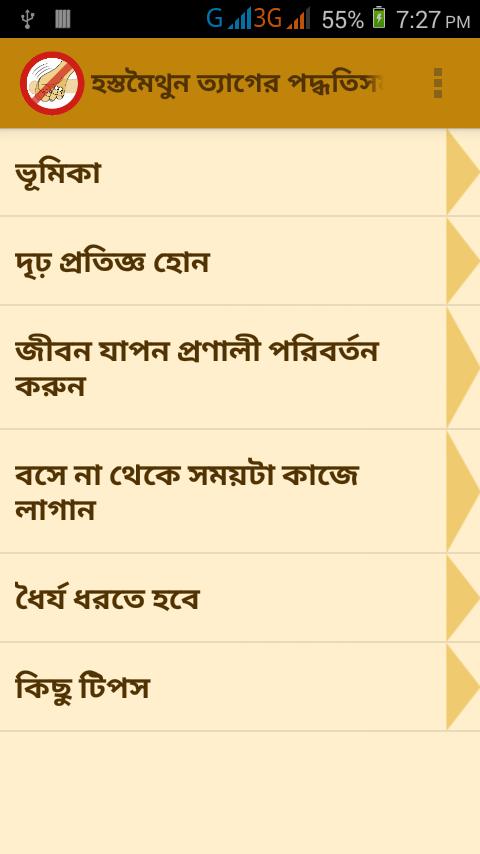 G 3G 55% 7:27 PM
হস্তমৈথুন ত্যাগের
ভূমিকা
দৃঢ় প্রতিজ্ঞ হোন
জীবন যাপন প্রণালী পরিবর্তন
করুন
বসে না থেকে সময়টা কাজে
লাগান
ধৈর্য ধরতে হবে
কিছু টিপস